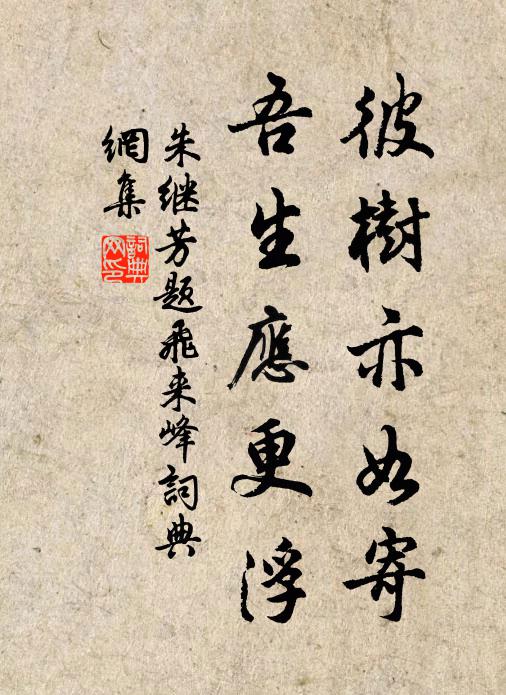 彼樹亦如寄
吾生應更浮
朱继芳題飛来峰詞典
網集
詞典
网印